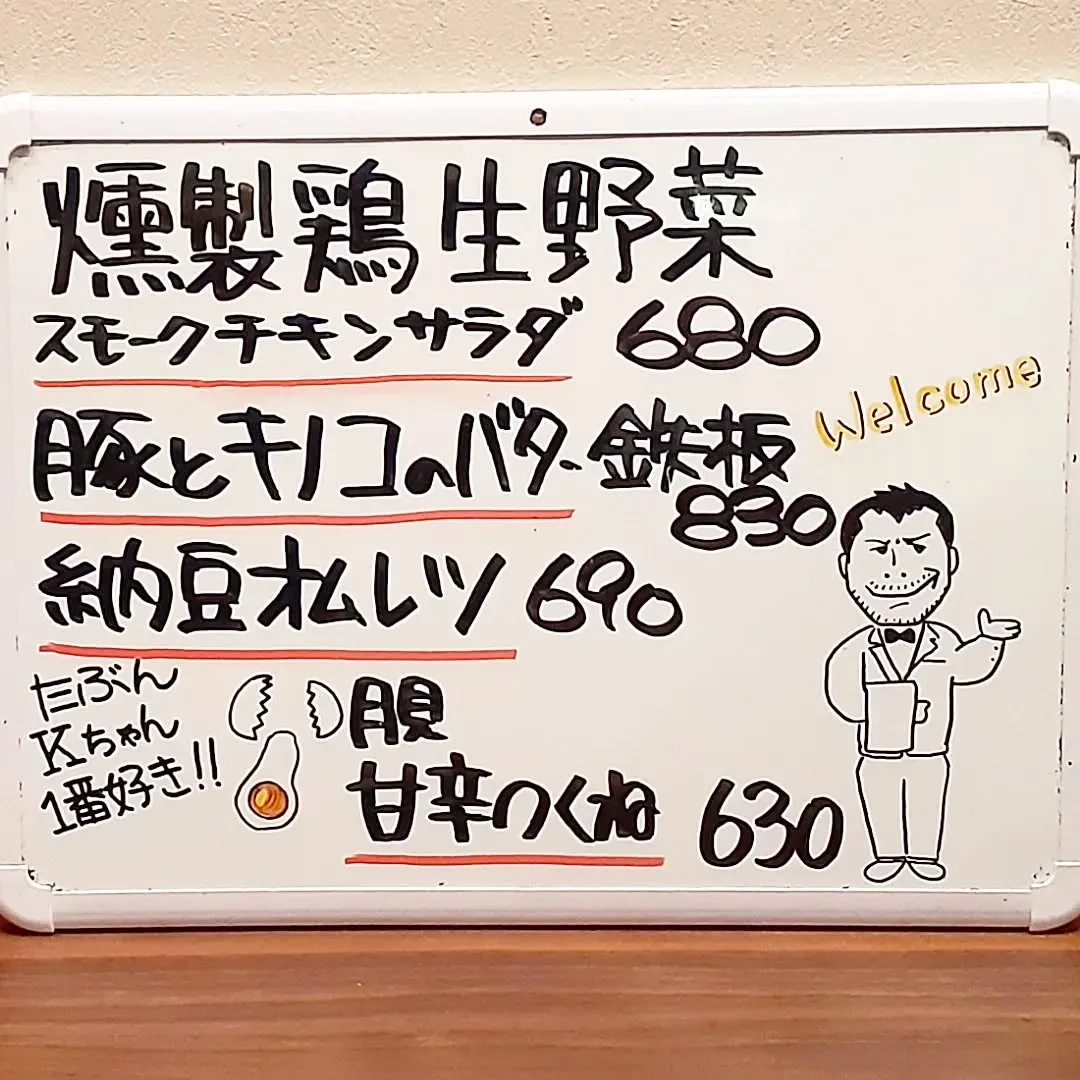 燻製鶏生野菜
スモークチキンサラダ 680
豚とキノコのバター鉄板
830
Welcome
納豆オムレツ 690
たぶん
Kちゃん
1番好き!!
月見
甘辛つくね 630